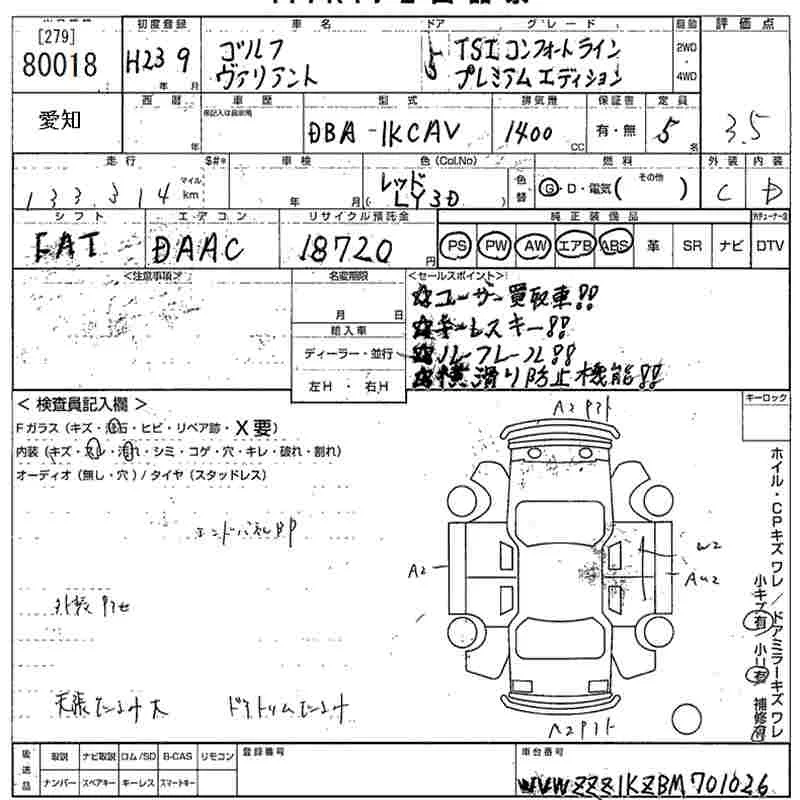 [279]
80018
初度登録
H23 9
年 月
車名
ゴルフ
ヴァリアント
ドア
5
グレード
TSI コンフォートライン
プレミアム エディション
駆動
2WD
4WD
評価点
3.5
愛知
西暦
年
車歴
型式
DBA -1KCAV
排気量
1400 CC
保証書
有・無
定員
5 名
走行
133,314
マイル
km
$#*
車検
年 月
色(Col.No)
レッド
( LY3D )
色替
燃料
G・D・電気( その他 )
外装
C
内装
D
シフト
FAT
エアコン
DAAC
リサイクル預託金
18720 円
純正装備品
PS PW AW エアB ABS 革 SR ナビ DTV
<注意事項>
名変期限
月 日
輸入車
ディーラー・並行
左H・右H
<セールスポイント>
☆ユーザー買取車!!
☆キーレスキー!!
☆ルーフレール!!
☆横滑り防止機能!!
< 検査員記入欄 >
Fガラス(キズ・飛石・ヒビ・リペア跡・X要)
内装(キズ・スレ・汚れ・シミ・コゲ・穴・キレ・破れ・割れ)
オーディオ(無し・穴)/タイヤ(スタッドレス)
エンドパネル凹
外装 アセ
天張たるみ大 ドアトリムたるみ
キーロック
A2
W2
AU2
ホイル・CPキズ ワレ / ドアミラーキズ ワレ
小キズ有 小凹有 補修有
後送品
取説 ナビ取説 ロム/SD B-CAS リモコン
ナンバー スペアキー キーレス スマートキー
登録番号
車台番号
WVWZZZ1KZBM701026